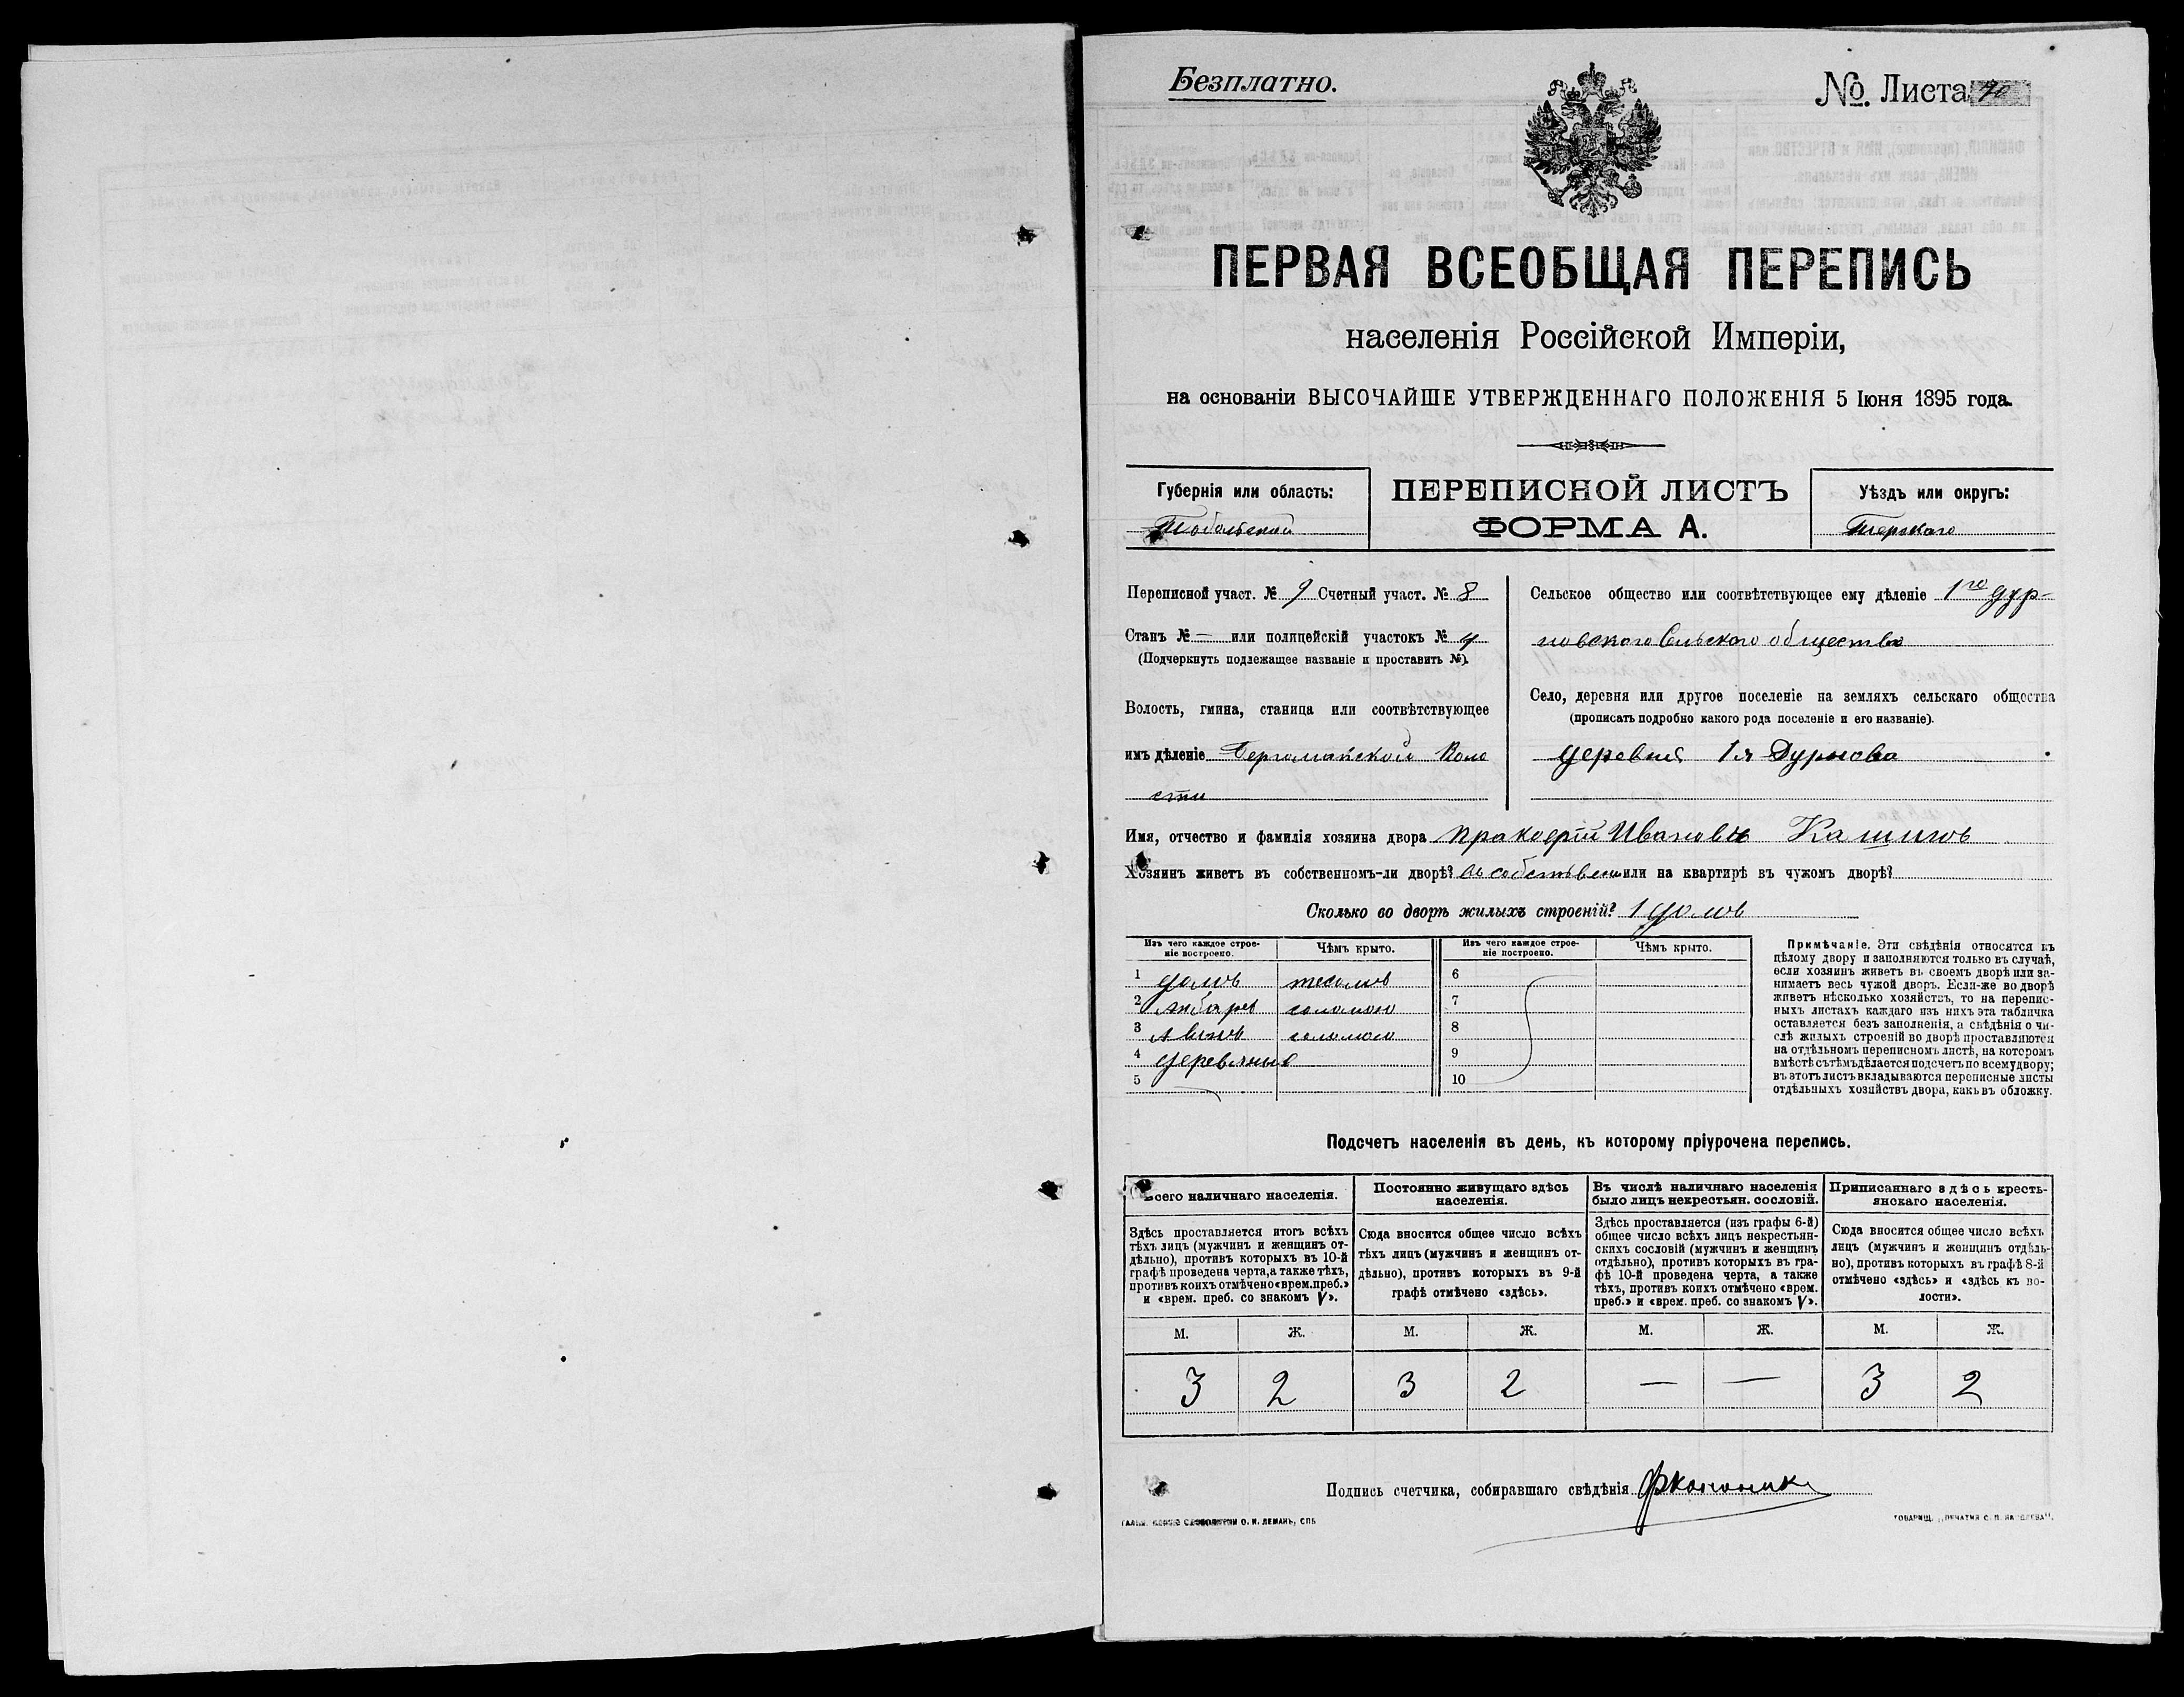 Безплатно.
№ Листа 70
ПЕРВАЯ ВСЕОБЩАЯ ПЕРЕПИСЬ
населенія Россійской Имперіи,
на основаніи ВЫСОЧАЙШЕ УТВЕРЖДЕННАГО ПОЛОЖЕНІЯ 5 Іюня 1895 года.
Губернія или область:
Тобольской
ПЕРЕПИСНОЙ ЛИСТЪ
ФОРМА А.
Уѣздъ или округъ:
Тарскаго
Переписной участ. № 9 Счетный участ. № 8
Станъ № — или полицейскій участокъ № 4
(Подчеркнуть подлежащее названіе и проставить №).
Волость, гмина, станица или соотвѣтствующее
имъ дѣленіе Бергамакской Воло
сти
Сельское общество или соотвѣтствующее ему дѣленіе 1го Дур-
новскаго Сельскаго общества
Село, деревня или другое поселеніе на земляхъ сельскаго общества
(прописать подробно какого рода поселеніе и его названіе).
деревня 1я Дурнова
Имя, отчество и фамилія хозяина двора Пракофій Ивановъ Кашинъ
Хозяинъ живетъ въ собственномъ-ли дворѣ? въ собствен или на квартирѣ въ чужомъ дворѣ?
Сколько во дворѣ жилыхъ строеній? 1 домъ
Изъ чего каждое строе-
ніе построено.
Чѣмъ крыто.
Изъ чего каждое строе-
ніе построено.
Чѣмъ крыто.
1 домъ тесомъ 6
2 анбаръ соломою 7
3 соломою 8
4 деревяные 9
5 10
Примѣчаніе. Эти свѣдѣнія относятся къ
цѣлому двору и заполняются только въ случаѣ,
если хозяинъ живетъ въ своемъ дворѣ или за-
нимаетъ весь чужой дворъ. Если-же во дворѣ
живетъ нѣсколько хозяйствъ, то на перепис-
ныхъ листахъ каждаго изъ нихъ эта табличка
оставляется безъ заполненія, а свѣдѣнія о чи-
слѣ жилыхъ строеній во дворѣ проставляются
на отдѣльномъ переписномъ листѣ, на которомъ
вмѣстѣ съ тѣмъ дѣлается подсчетъ по всему двору;
въ этотъ листъ вкладываются переписные листы
отдѣльныхъ хозяйствъ двора, какъ въ обложку.
Подсчетъ населенія въ день, къ которому пріурочена перепись.
Всего наличнаго населенія.
Здѣсь проставляется итогъ всѣхъ
тѣхъ лицъ (мужчинъ и женщинъ от-
дѣльно), противъ которыхъ въ 10-й
графѣ проведена черта, а также тѣхъ,
противъ коихъ отмѣчено «врем. преб.»
и «врем. преб. со знакомъ V».
Постоянно живущаго здѣсь
населенія.
Сюда вносится общее число всѣхъ
тѣхъ лицъ (мужчинъ и женщинъ от-
дѣльно), противъ которыхъ въ 9-й
графѣ отмѣчено «здѣсь».
Въ числѣ наличнаго населенія
было лицъ некрестьян. сословій.
Здѣсь проставляется (изъ графы 6-й)
общее число всѣхъ лицъ некрестьян-
скихъ сословій (мужчинъ и женщинъ
отдѣльно), противъ которыхъ въ гра-
фѣ 10-й проведена черта, а также
тѣхъ, противъ коихъ отмѣчено «врем.
преб.» и «врем. преб. со знакомъ V».
Приписаннаго здѣсь кресть-
янскаго населенія.
Сюда вносится общее число всѣхъ
лицъ (мужчинъ и женщинъ отдѣль-
но), противъ которыхъ въ графѣ 8-й
отмѣчено «здѣсь» и «здѣсь къ во-
лости».
М. Ж. М. Ж. М. Ж. М. Ж.
3 2 3 2 — — 3 2
Подпись счетчика, собиравшаго свѣдѣнія
О. И. ЛЕМАНЪ, СПБ